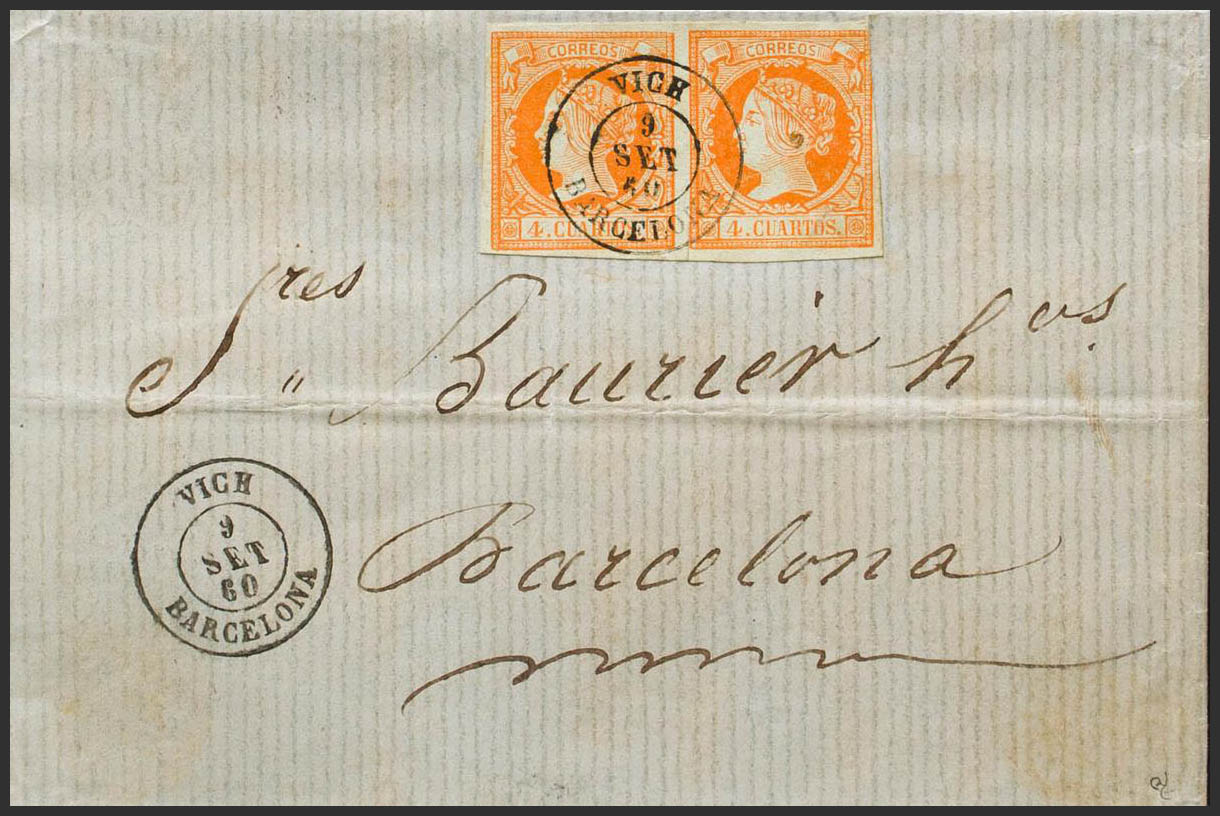 CORREOS CORREOS
VICH
9
SET
60
BARCELONA
4. CUARTOS. 4. CUARTOS.
Sres " Baurier hos
Barcelona
VICH
9
SET
60
BARCELONA